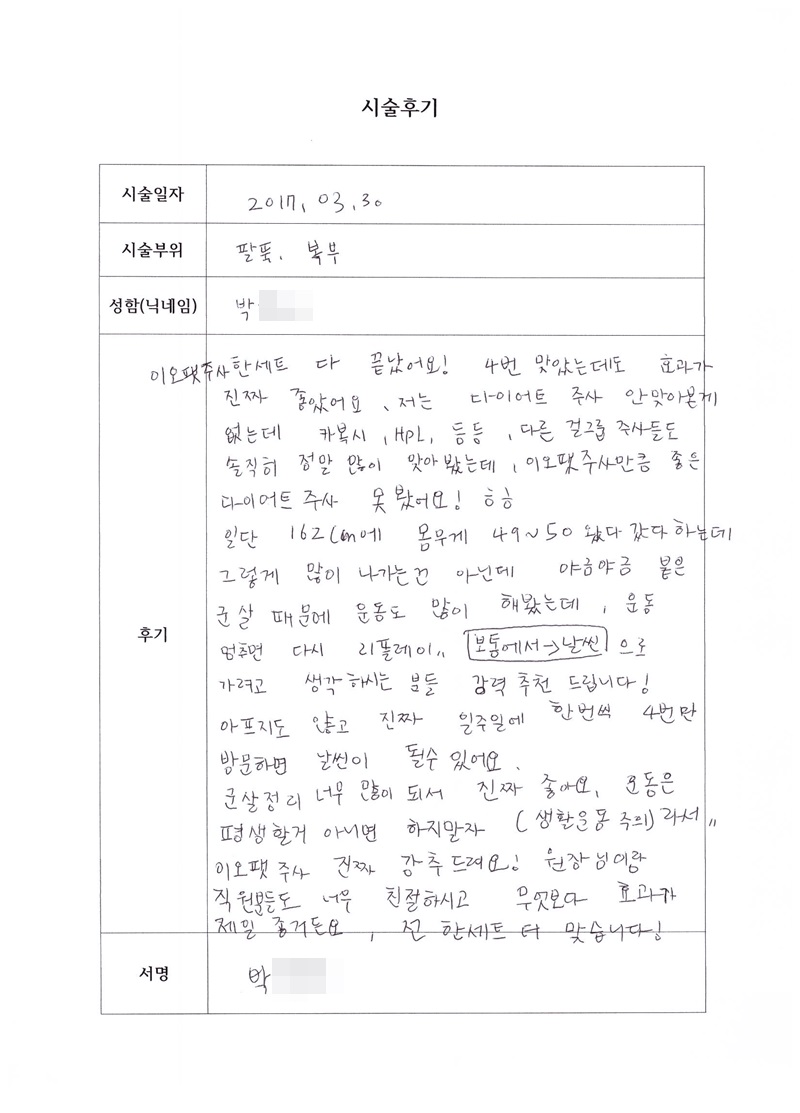 시술후기
시술일자 2017. 03. 30
시술부위 팔뚝. 복부
성함(닉네임) 박
이오팻주사한세트 다 끝났어요! 4번 맞았는데도 효과가
진짜 좋았어요, 저는 다이어트 주사 안맞아본게
없는데 카복시, HPL, 등등, 다른 걸그룹 주사들도
솔직히 정말 많이 맞아봤는데, 이오팻주사만큼 좋은
다이어트 주사 못봤어요! ㅎㅎ
일단 162cm에 몸무게 49~50 왔다갔다하는데
그렇게 많이 나가는건 아닌데 야금야금 붙은
군살 때문에 운동도 많이 해봤는데, 운동
멈추면 다시 리플레이,, 보통에서→날씬 으로
가려고 생각하시는 분들 강력 추천 드립니다!
아프지도 않고 진짜 일주일에 한번씩 4번만
방문하면 날씬이 될수있어요.
군살정리 너무 많이 되서 진짜 좋아요, 운동은
평생할거 아니면 하지말자 (생활운동 주의) 라서,,
이오팻주사 진짜 강추드려요! 원장님이랑
직원분들도 너무 친절하시고 무엇보다 효과가
제일 좋거든요, 전 한세트 더 맞습니다!
후기
서명 박